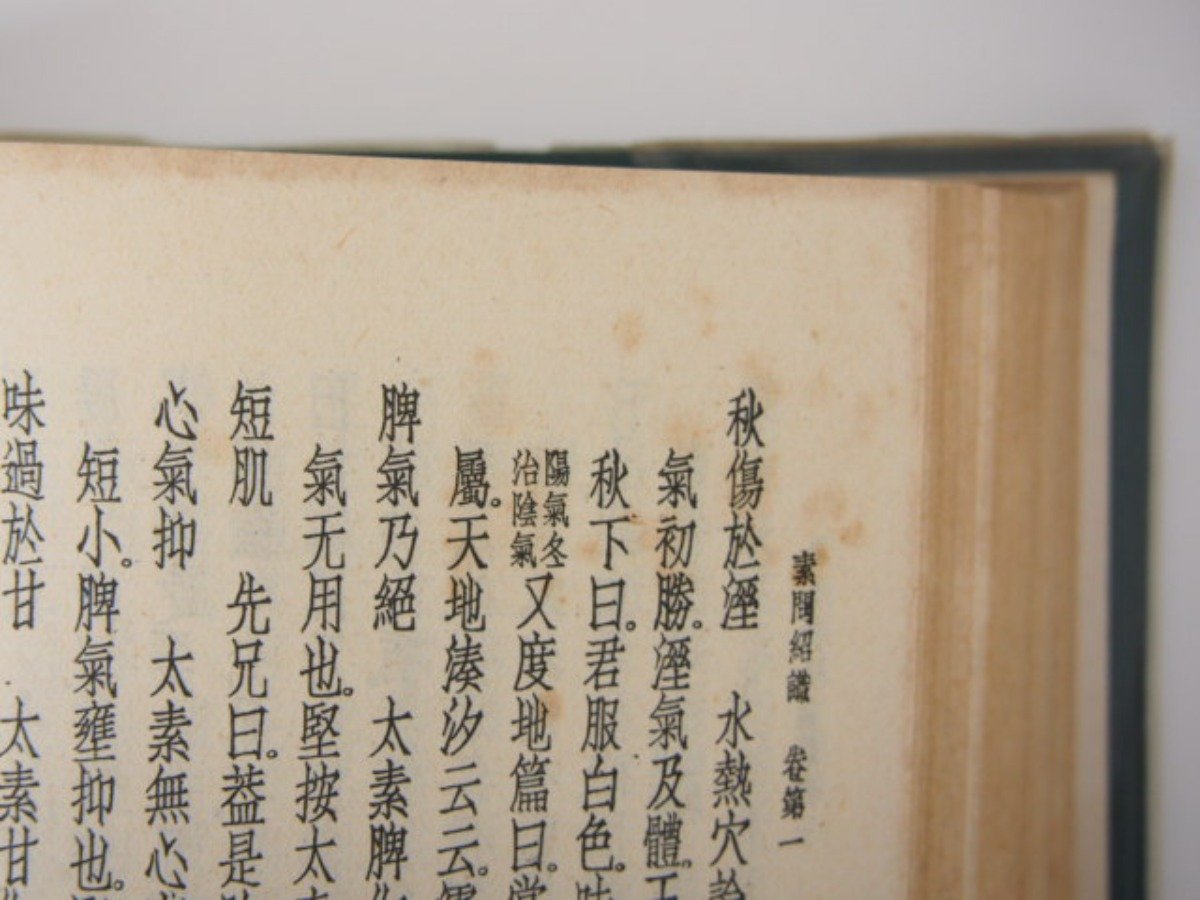 素問紹識 卷第一
秋傷於溼 水熱穴論
氣初勝。溼氣及體。
秋下曰。君服白色。味
陽氣冬
治陰氣
又度地篇曰。當
屬。天地湊汐云云。
脾氣乃絕 太素脾
氣无用也。堅按太
短肌 先兄曰。葢是
心氣抑 太素無心
短小。脾氣壅抑也。
味過於甘 太素甘